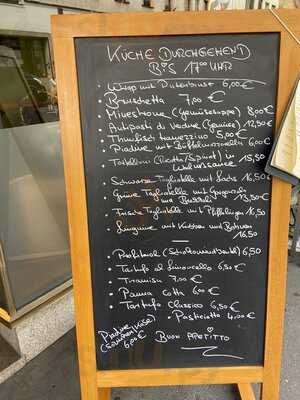 KÜCHE DURCHGEHEND
BIS 17°° UHR
• Wrap mit Putenbrust 6,00€
• Bruschetta 7,00 €
• Minestrone (Gemüsesuppe) 8,00€
• Antipasti di Verdure (Gemüse) 12,50€
• Thunfisch tramezzino 5,00€
• Piadine mit Büffelmozzarella 6,00€
• Tortelloni (Ricotta/Spinat) in 15,50
Walnusssauce
• Schwarze Tagliatelle mit Lachs 16,50€
• Grüne Tagliatelle mit
und Burrata 13,50€
• Frische Tagliatelle mit Pfifferlinge 16,50
• Linguine mit Krabben und Bohnen
16,50
• Profiterol 6,50
• Tartufo al Limoncello 6,50€
• Tiramisu 7,00€
• Panna Cotta 6,00 €
• Tartufo Classico 6,50€
• Pasticiotto 4,00€
Piadine
(Schinken/Käse)
6,00€
BUON APPETITO